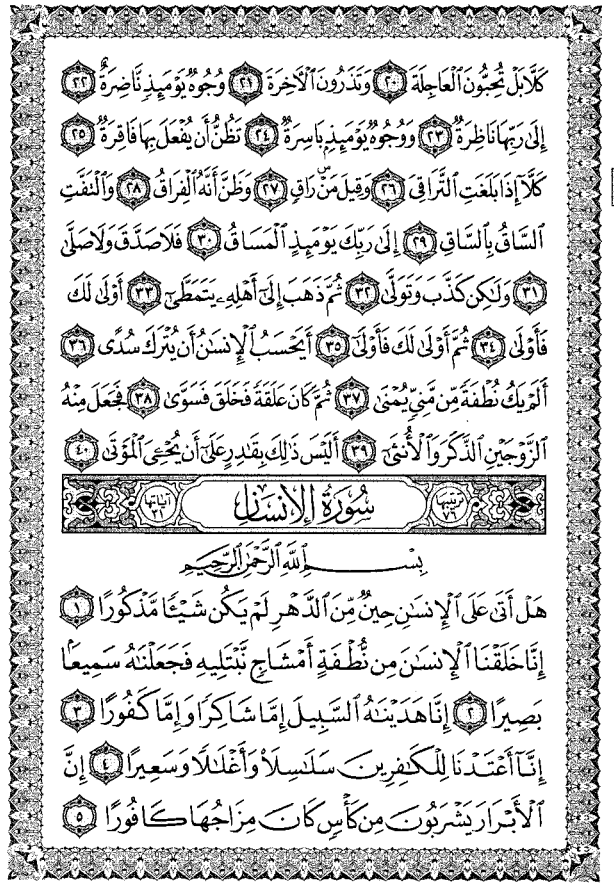 كَلَّا بَلْ تُحِبُّونَ ٱلْعَاجِلَةَ ٢٠ وَتَذَرُونَ ٱلْـَٔاخِرَةَ ٢١ وُجُوهٌ يَوْمَئِذٍ نَّاضِرَةٌ ٢٢
إِلَىٰ رَبِّهَا نَاظِرَةٌ ٢٣ وَوُجُوهٌ يَوْمَئِذٍۭ بَاسِرَةٌ ٢٤ تَظُنُّ أَن يُفْعَلَ بِهَا فَاقِرَةٌ ٢٥
كَلَّآ إِذَا بَلَغَتِ ٱلتَّرَاقِىَ ٢٦ وَقِيلَ مَنْ ۜ رَاقٍ ٢٧ وَظَنَّ أَنَّهُ ٱلْفِرَاقُ ٢٨ وَٱلْتَفَّتِ
ٱلسَّاقُ بِٱلسَّاقِ ٢٩ إِلَىٰ رَبِّكَ يَوْمَئِذٍ ٱلْمَسَاقُ ٣٠ فَلَا صَدَّقَ وَلَا صَلَّىٰ
٣١ وَلَـٰكِن كَذَّبَ وَتَوَلَّىٰ ٣٢ ثُمَّ ذَهَبَ إِلَىٰٓ أَهْلِهِۦ يَتَمَطَّىٰٓ ٣٣ أَوْلَىٰ لَكَ
فَأَوْلَىٰ ٣٤ ثُمَّ أَوْلَىٰ لَكَ فَأَوْلَىٰٓ ٣٥ أَيَحْسَبُ ٱلْإِنسَـٰنُ أَن يُتْرَكَ سُدًى ٣٦
أَلَمْ يَكُ نُطْفَةً مِّن مَّنِىٍّ يُمْنَىٰ ٣٧ ثُمَّ كَانَ عَلَقَةً فَخَلَقَ فَسَوَّىٰ ٣٨ فَجَعَلَ مِنْهُ
ٱلزَّوْجَيْنِ ٱلذَّكَرَ وَٱلْأُنثَىٰٓ ٣٩ أَلَيْسَ ذَٰلِكَ بِقَـٰدِرٍ عَلَىٰٓ أَن يُحْـِۧىَ ٱلْمَوْتَىٰ ٤٠
ترتيبها ٧٦ سُورَةُ الإِنسَانِ آياتها ٣١
بِسْمِ ٱللَّهِ ٱلرَّحْمَـٰنِ ٱلرَّحِيمِ
هَلْ أَتَىٰ عَلَى ٱلْإِنسَـٰنِ حِينٌ مِّنَ ٱلدَّهْرِ لَمْ يَكُن شَيْـًٔا مَّذْكُورًا ١
إِنَّا خَلَقْنَا ٱلْإِنسَـٰنَ مِن نُّطْفَةٍ أَمْشَاجٍ نَّبْتَلِيهِ فَجَعَلْنَـٰهُ سَمِيعًۢا
بَصِيرًا ٢ إِنَّا هَدَيْنَـٰهُ ٱلسَّبِيلَ إِمَّا شَاكِرًا وَإِمَّا كَفُورًا ٣
إِنَّآ أَعْتَدْنَا لِلْكَـٰفِرِينَ سَلَـٰسِلَا۟ وَأَغْلَـٰلًا وَسَعِيرًا ٤ إِنَّ
ٱلْأَبْرَارَ يَشْرَبُونَ مِن كَأْسٍ كَانَ مِزَاجُهَا كَافُورًا ٥